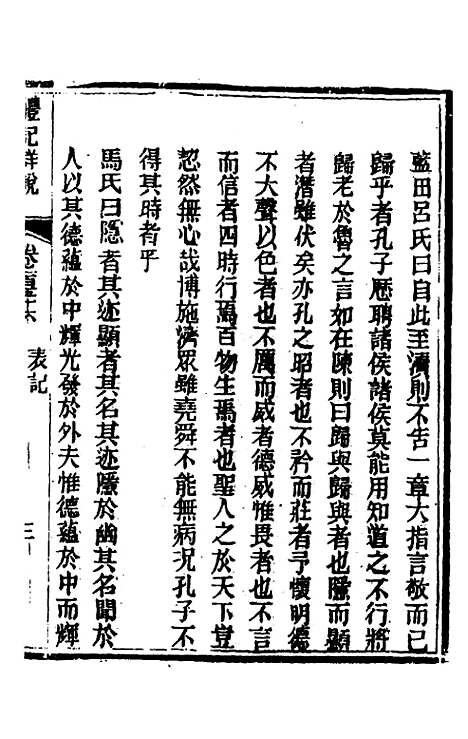 藍田呂氏曰自此至瀆則不告一章大指言敬而已
歸乎者孔子歷聘諸侯諸侯莫能用知道之不行將
歸老於魯之言如在陳則曰歸與歸與者也隱而顯
者潛雖伏矣亦孔之昭者也不矜而莊者予懷明德
不大聲以色者也不厲而威者德威惟畏者也不言
而信者四時行焉百物生焉者也聖人之於天下豈
恝然無心哉博施濟眾雖堯舜不能無病况孔子不
得其時者乎
馬氏曰隱者其迹顯者其名其迹隱於幽其名聞於
人以其德蘊於中輝光發於外夫惟德蘊於中而輝
禮記詳說 表記 三